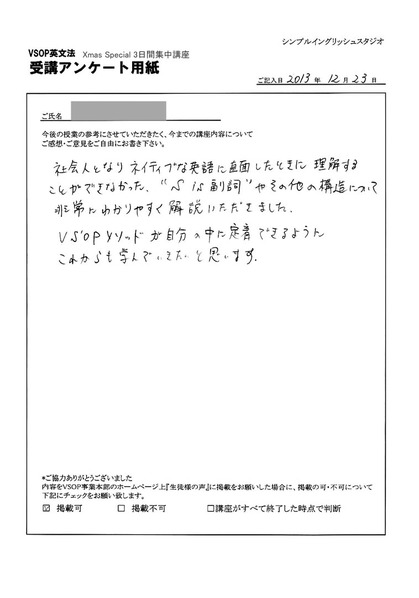 シンプルイングリッシュスタジオ
VSOP英文法 Xmas Special 3日間集中講座
受講アンケート用紙
ご記入日 2013 年 12 月 23 日
ご氏名
今後の授業の参考にさせていただきたく、今までの講座内容について
ご感想・ご意見をご自由にお書き下さい。
社会人となりネイティブな英語に直面したときに理解する
ことができなかった、"S is 副詞"やその他の構造について
非常にわかりやすく解説いただきました。
VSOPメソッドが自分の中に定着できるように
これからも学んでいきたいと思います。
*ご協力ありがとうございました
内容をVSOP事業本部のホームページ上『生徒様の声』に掲載をお願いした場合に、掲載の可・不可について
下記にチェックをお願い致します。
☑ 掲載可 □ 掲載不可 □講座がすべて終了した時点で判断